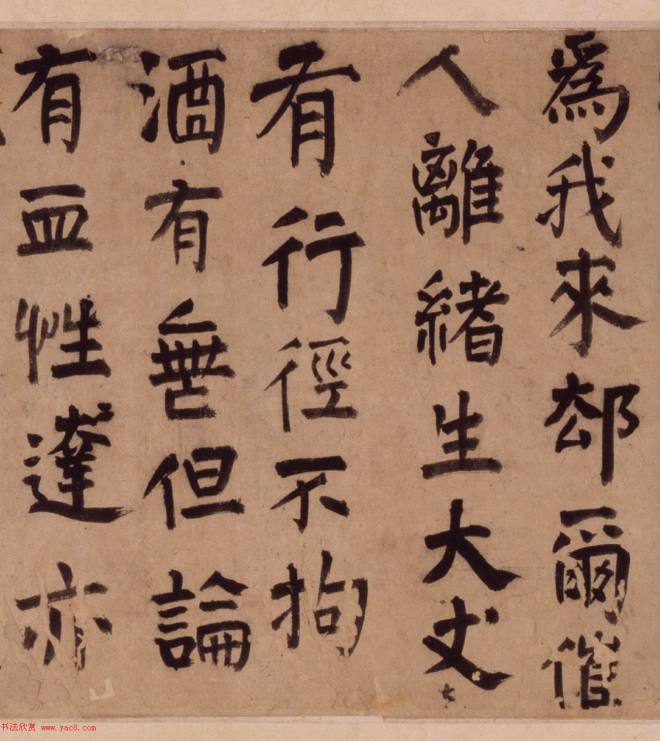 為我來郤爾催
人離緒生大丈
有行徑不拘
酒有無但論
有血性達亦
书法欣赏 www.yac8.com